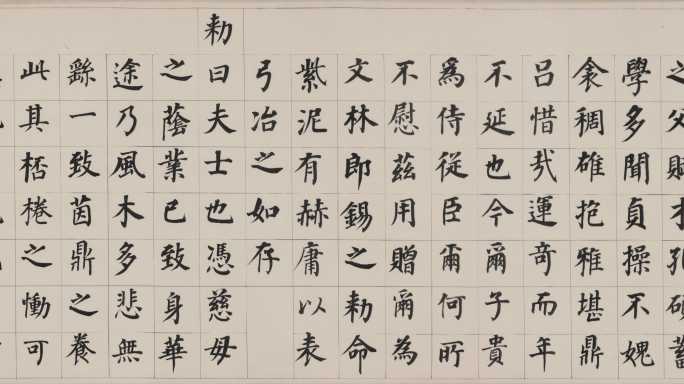 之父賦才孔碩蓄
學多聞貞操不媿
衾稠雄抱雅堪鼎
呂惜㢤運奇而年
不延也今爾子貴
爲侍從臣爾何所
不慰茲用贈爾為
文林郎錫之勑命
紫泥有赫庸以表
弓冶之如存
勑
曰夫士也憑慈母
之蔭業已致身華
途乃風木多悲無
繇一致茵鼎之養
此其桮棬之慟可